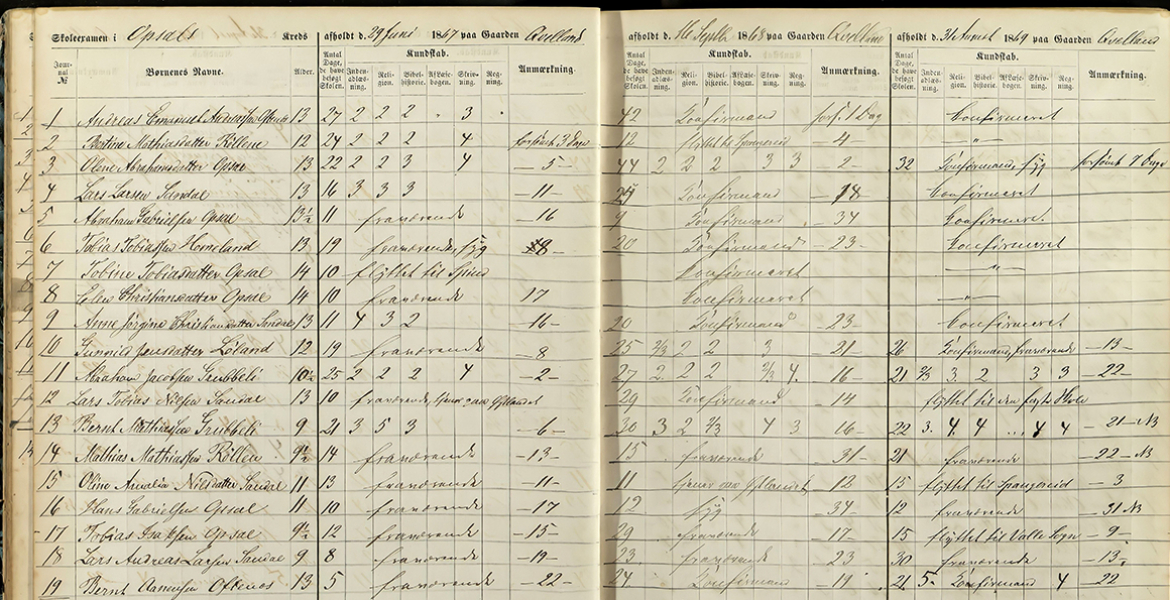 Skoleexamen i Opsals Kreds afholdt d. 29 Juni 1867 paa Gaarden Qvelland afholdt d. 1868 paa Gaarden afholdt d. 31 August 1869 paa Gaarden Qvelland
Kundskab. Kundskab. Kundskab.
Journal № Børnenes Navne. Alder. Antal Dage, de have besøgt Skolen. Indenadlæsning. Religion. Bibelhistorie. Aflæsebogen. Skrivning. Regning. Anmærkning. Antal Dage, de have besøgt Skolen. Indenadlæsning. Religion. Bibelhistorie. Aflæsebogen. Skrivning. Regning. Anmærkning. Antal Dage, de have besøgt Skolen. Indenadlæsning. Religion. Bibelhistorie. Aflæsebogen. Skrivning. Regning. Anmærkning.
1 Andreas Emanuel Andreassen 13 27 2 2 2 3 42 Konfirmand fors. 1 Dag Confirmeret
2 Bertine Mathiasdatter Röllene 12 24 2 2 2 4 forsømt 3 Dage 12 flyttet til 4 — " —
3 Olene Abrahamsdatter Opsal 13 22 2 2 3 4 — 5 — 44 2 2 2 3 3 2 — 32 Konfirmand, syg forsømt Dage
4 Lars Larsen Sandal 13 16 3 3 3 — 11 — Konfirmand — 18 Confirmeret
5 Abraham Gabrielsen Opsal 13½ 11 fraværende — 16 9 Konfirmand — 34 Confirmeret
6 Tobias Tobiassen Homeland 13 19 fraværende, syg 20 Konfirmand — 23 — Confirmeret
7 Tobine Tobiasdatter Opsal 14 10 flyttet til Confirmeret — " —
8 Elen Christiansdatter Opsal 14 10 fraværende 17 Confirmeret — " —
9 Anne Jörgine Christiansdatter Sandal 13 11 4 3 2 — 16 — 20 Konfirmand — 23 — Confirmeret
10 Gunnild Jensdatter Löland 12 19 fraværende — 8 25 2/3 2 2 3 21 — 26 Konfirmand, fraværende — 13 —
11 Abraham Jacobsen Grubbeli 10½ 25 2 2 2 4 — 2 — 27 2 2 2 2/3 4 16 — 21 2/3 3 2 3 3 — 22 —
12 Lars Tobias Nilsen Sandal 13 10 fraværende, 29 Konfirmand 14 flyttet til den Skole
13 Bernt Mathiassen Grubbeli 9 21 3 5 3 — 6 — 30 3 2 2/3 4 3 16 — 22 3. 4 4 4 4 — 21 — NB
14 Mathias Mathiassen Röllen 9½ 14 fraværende — 13 — 15 fraværende — 31 — 21 fraværende — 22 — NB
15 Oline Amalia Nilsdatter Sandal 11 13 fraværende — 11 — 11 tjener paa 12 15 flyttet til Spangereid — 3
16 Hans Gabrielsen Opsal 11 10 fraværende — 17 12 syg — 34 — 12 fraværende — 31 NB
17 Tobias Isaksen Opsal 9½ 12 fraværende — 15 — 29 fraværende — 17 15 flyttet til Valle Sogn — 9 —
18 Lars Andreas Larsen Sandal 9 8 fraværende — 19 — 23 fraværende 23 30 fraværende — 13 —
19 Bernt Aanensen 13 5 fraværende — 22 — 24 Konfirmand — 19 21 5 Konfirmand 4 — 22